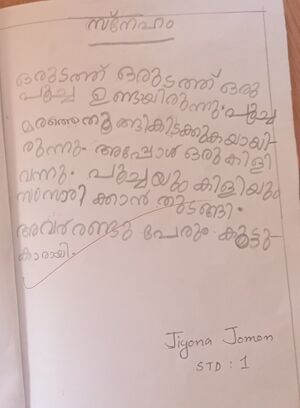 സ്നേഹം
ഒരുടത്ത് ഒരുടത്ത് ഒരു
പൂച്ച ഉണ്ടായിരുന്നു. പൂച്ച
മരത്തെതൂങ്ങികിടക്കുകയായി-
രുന്നു. അപ്പോൾ ഒരു കിളി
വന്നു. പൂച്ചയും കിളിയും
സംസാരിക്കാൻ തുടങ്ങി.
അവർ രണ്ടു പേരും കൂട്ടു-
കാരായി.
Jiyona Jomon
STD : 1